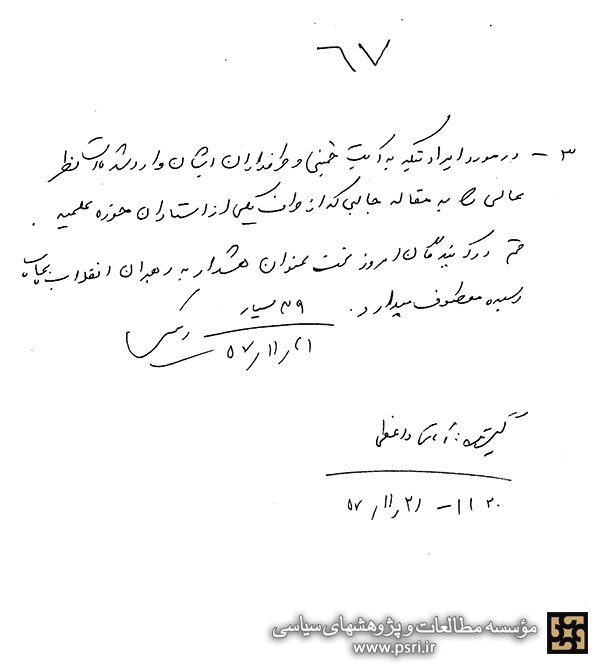 ۶۷
۳ – در مورد ایراد تکیه به آیت خمینی و طرفداران ایشان وارد شده است نظر
عالی را به مقاله جالبی که از طرف یکی از استادان حوزه علمیه
قم در آیندگان امروز تحت عنوان هشدار به رهبران انقلاب بچاپ
رسیده معطوف میدارد.
۴۹ سیار
۲۱ ر ۱۱ ر ۵۷
گیرنده :
۱۱۲۰ – ۲۱ ر ۱۱ ر ۵۷
مؤسسه مطالعات و پژوهشهای سیاسی
www.psri.ir